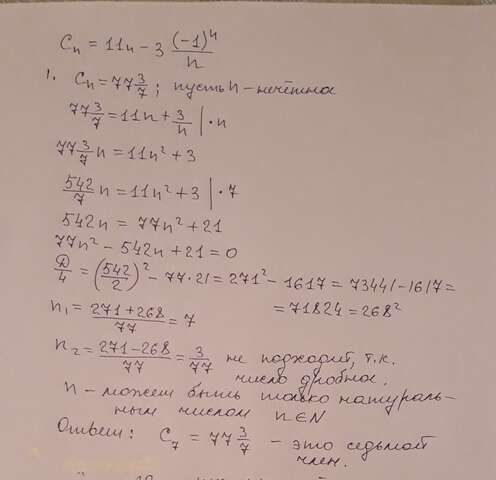 Cₙ = 11n − 3 (−1)ⁿ/n
1. Cₙ = 77 3/7; пусть n – нечётное
77 3/7 = 11n + 3/n | · n
77 3/7 n = 11n² + 3
542/7 n = 11n² + 3 | · 7
542n = 77n² + 21
77n² − 542n + 21 = 0
Д/4 = (542/2)² − 77·21 = 271² − 1617 = 73441 − 1617 =
= 71824 = 268²
n₁ = (271 + 268)/77 = 7
n₂ = (271 − 268)/77 = 3/77 не подходит, т.к.
число дробное.
n – может быть только натураль-
ным числом n ∈ N
Ответ: C₇ = 77 3/7 – это седьмой
член.